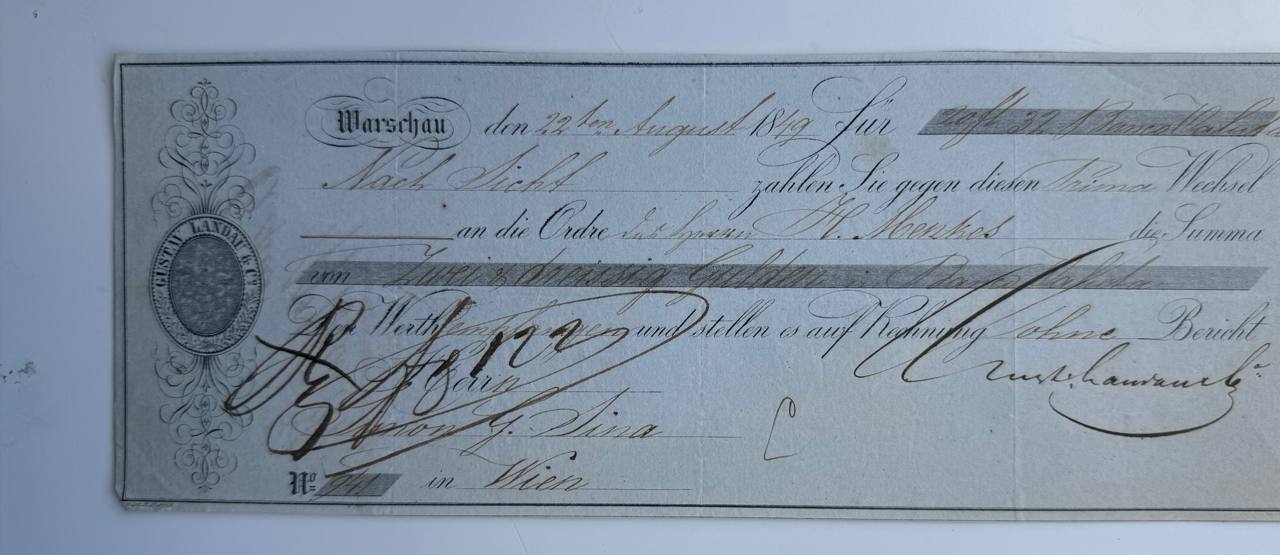 GUSTAV LANDAU & Co.
Warschau den 22ten August 1849 Für 32
Nach Sicht zahlen Sie gegen diesen Prima Wechsel
an die Ordre des Herrn H. Menkes die Summa
von Zwei & dreissig Gulden
den Werth empfangen und stellen es auf Rechnung ohne Bericht
Herrn
Simon G. Sina
No in Wien